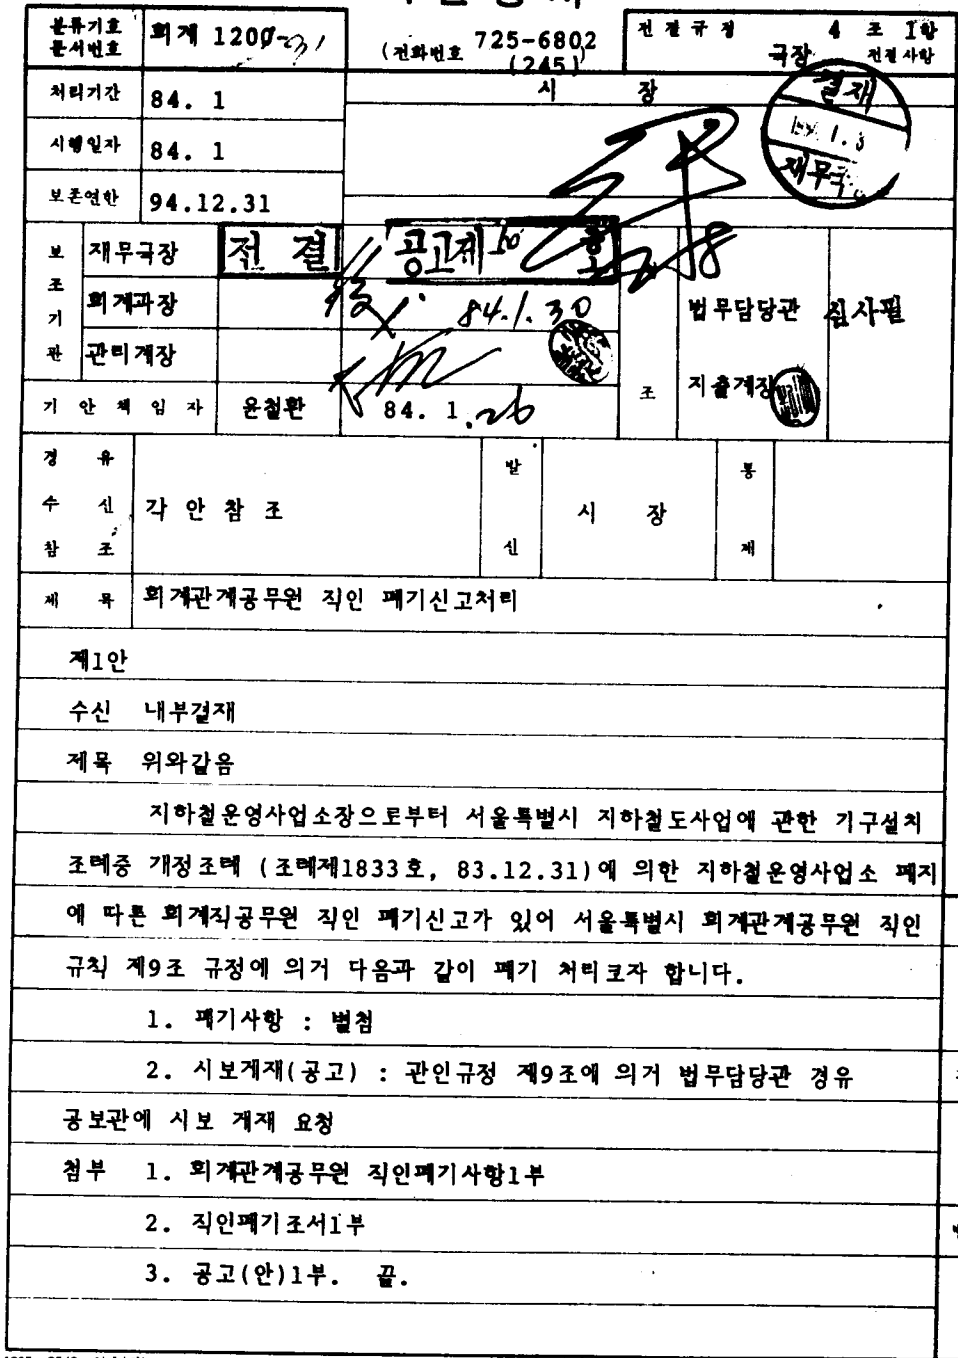 분류기호
문서번호
회계 1200-31
(전화번호 725-6802
(245))
전결규정 4 조 1항
국장 전결사항
처리기간 84. 1
시 장
결재
시행일자 84. 1
보존연한 94.12.31
보 조 기 관
재무국장 전 결
공고제
회계과장
84.1.30
법무담당관 심사필
관리계장
조 지출계장
기 안 책 임 자 윤철환 84. 1. 26
경 유
수 신 각 안 참 조
참 조
발 신 시 장
통 제
제 목 회계관계공무원 직인 폐기신고처리
제1안
수신 내부결재
제목 위와같음
지하철운영사업소장으로부터 서울특별시 지하철도사업에 관한 기구설치
조례중 개정조례 (조례제1833호, 83.12.31)에 의한 지하철운영사업소 폐지
에 따른 회계직공무원 직인 폐기신고가 있어 서울특별시 회계관계공무원 직인
규칙 제9조 규정에 의거 다음과 같이 폐기 처리코자 합니다.
1. 폐기사항 : 별첨
2. 시보게재(공고) : 관인규정 제9조에 의거 법무담당관 경유
공보관에 시보 게재 요청
첨부 1. 회계관계공무원 직인폐기사항1부
2. 직인폐기조서1부
3. 공고(안)1부. 끝.